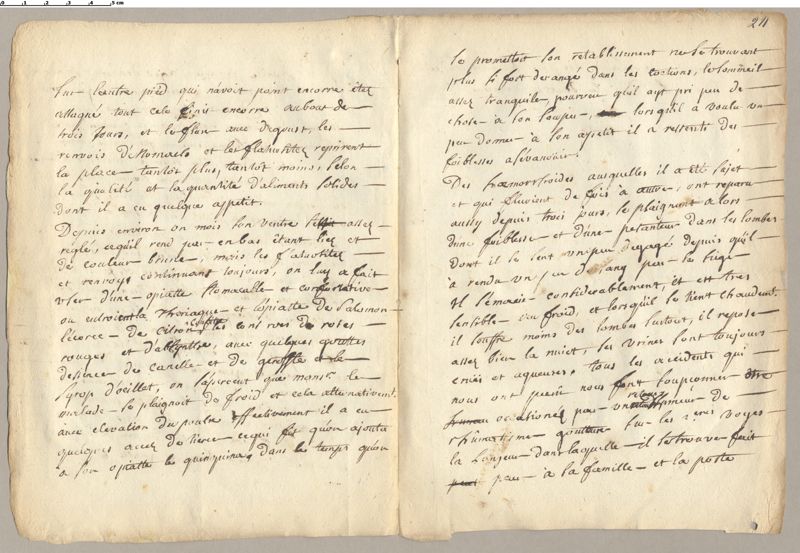 0 1 2 3 4 5 cm
24
sur l'autre pied qui n'avoit point encorre étée
attaqué tout cela finit encorre au bout de
trois jours, et le flan avec degoust, les
renvois d'Estomach et les flatuositéz reprirent
la place tantôt plus, tantôt moins, selon
la qualité et la quantité d'aliments solides
dont il a eu quelque appetit.
Depuis environ un mois son ventre assez
reglé, ce qu'il rend par en bas étant liez et
de couleur brune, mais les flatuositez
et renvoys continuant toujours, on luy a fait
user d'une opiatte stomacalle et confortative
ou entroient la Theriaque et l'opiatte de Salomon
l'ecorce de citron confitte les conserves de roses
rouges et d'absynthe, avec quelques gouttes
dessence de canelle et de geroffle
syrop d'oeillet, on s'aperceut que monsr. le
malade se plaignoit de froid et cela alternativemt.
avec elevation du poulx effectivement il a eu
quelques accez de tierce ce qui fit qu'on ajouta
a son opiatte le quinquina, dans le temps qu'on
se promettoit son retablissement ne se trouvant
plus si fort derangé dans les coctions, le sommeil
assez tranquile pourveu qu'il ayt pri peu de
chose a son souper, lorsqu'il a voulu un
peu donner a son apetit il a ressenti des
foiblesses a s'évanoüir.
Des hœmorrhoides ausquelles il a été sujet
et qui fluvient de fois à autre, ont reparu
aussy depuis trois jours, se plaignant alors
d'une foiblesse et d'une pesanteur dans les lombes
dont il se sent un peu degagé depuis qu'il
a rendu un peu de sang par le siege
Il s'emacie considerablement, et est tres
sensible au froid, et lorsqu'il se tient chaudemt.
il souffre moins des lombes surtout, il repose
assez bien la nuict, les urines sont toujours
cruës et aqueuses. tous les accidents qui
nous ont paru nous font soupçonner être
occationés par un humeur de
rhumatisme goutteux sur les 1eres voyes
la longueur dans laquelle il se trouve fait
peu a la famille et la porte